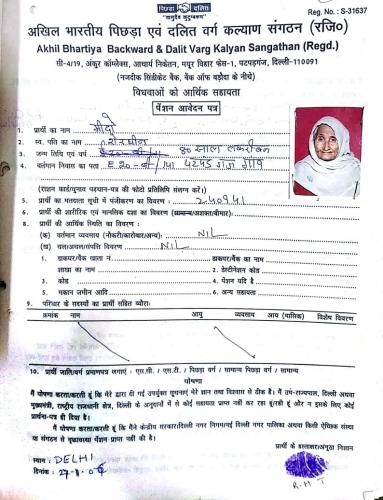 पिछड़ा दलित
"वसुधैव कुटुम्बकम"
Reg. No. : S-31637
अखिल भारतीय पिछड़ा एवं दलित वर्ग कल्याण संगठन (रजि०)
Akhil Bhartiya Backward & Dalit Varg Kalyan Sangathan (Regd.)
सी-4/19, अंकुर कॉम्लैक्स, आचार्य निकेतन, मयूर विहार फेस-1, पटपड़गंज, दिल्ली-110091
(नजदीक सिंडीकेट बैंक, बैंक ऑफ बड़ौदा के नीचे)
विधवाओं को आर्थिक सहायता
पेंशन आवेदन पत्र
1. प्रार्थी का नाम
2. स्व. पति का नाम
3. जन्म तिथि एवं वर्ष 80 साल
4. वर्तमान निवास का पता
(राशन कार्ड/चुनाव पहचान-पत्र की फोटो प्रतिलिपि संलग्न करें।)
5. प्रार्थी का मतदाता सूची में पंजीकरण का विवरण :
6. प्रार्थी की शारीरिक एवं मानसिक दशा का विवरण (सामान्य/अशक्त/बीमार)
8. प्रार्थी की आर्थिक स्थिति का विवरण :
(क) वर्तमान व्यवसाय (नौकरी/कारोबार/अन्य) NIL
(ख) चल/अचल/संपत्ति विवरण NIL
1. डाकघर/बैंक खाता नं. डाकघर/बैंक का नाम
शाखा का नाम 2. डेस्टीनेशन कोड
3. कोड 4. पेंशन यदि है
5. मकान जमीन आदि 6. अन्य सहायता
9. परिवार के सदस्यों का प्रार्थी सहित ब्यौरा:
क्रमांक नाम आयु व्यवसाय आय (मासिक) विशेष विवरण
10. प्रार्थी जाति/वर्ग प्रमाणपत्र लगाएं : एस.सी. / एस.टी. / पिछड़ा वर्ग / सामान्य पिछड़ा वर्ग / सामान्य
घोषणा
मैं घोषणा करता/करती हूं कि मेरे द्वारा दी गई उपर्युक्त सूचनाएं मेरे ज्ञान तथा विश्वास से ठीक है। मैं उप-राज्यपाल, दिल्ली अथवा
मुख्यमंत्री, राष्ट्रीय राजधानी क्षेत्र, दिल्ली के अनुदानों में से कोई सहायता प्राप्त नहीं कर रहा हूं/रही हूं और न इसके लिए कोई
प्रार्थना-पत्र ही दिया है।
मैं घोषणा करता/करती हूं कि मैंने केन्द्रीय सरकार/दिल्ली नगर निगम/नई दिल्ली नगर पालिका अथवा किसी ऐच्छिक संस्था
या संगठन से वृद्धावस्था पेंशन प्राप्त नहीं की है।
प्रार्थी के हस्ताक्षर/अंगूठा निशान
स्थान: DELHI
दिनांक:
R.H.T